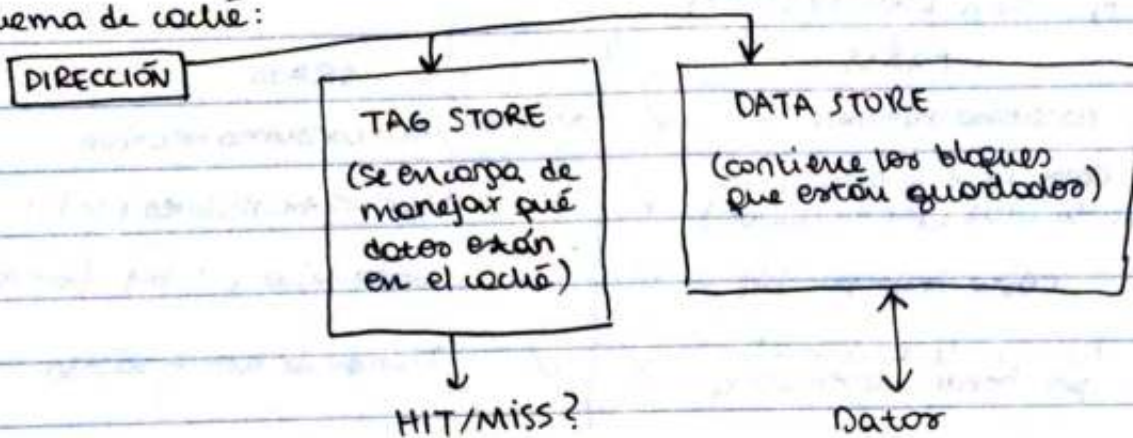 uema de caché:
DIRECCIÓN
TAG STORE
(se encarga de
manejar qué
datos están
en el caché)
DATA STORE
(contiene los bloques
que están guardados)
HIT/MISS?
Datos